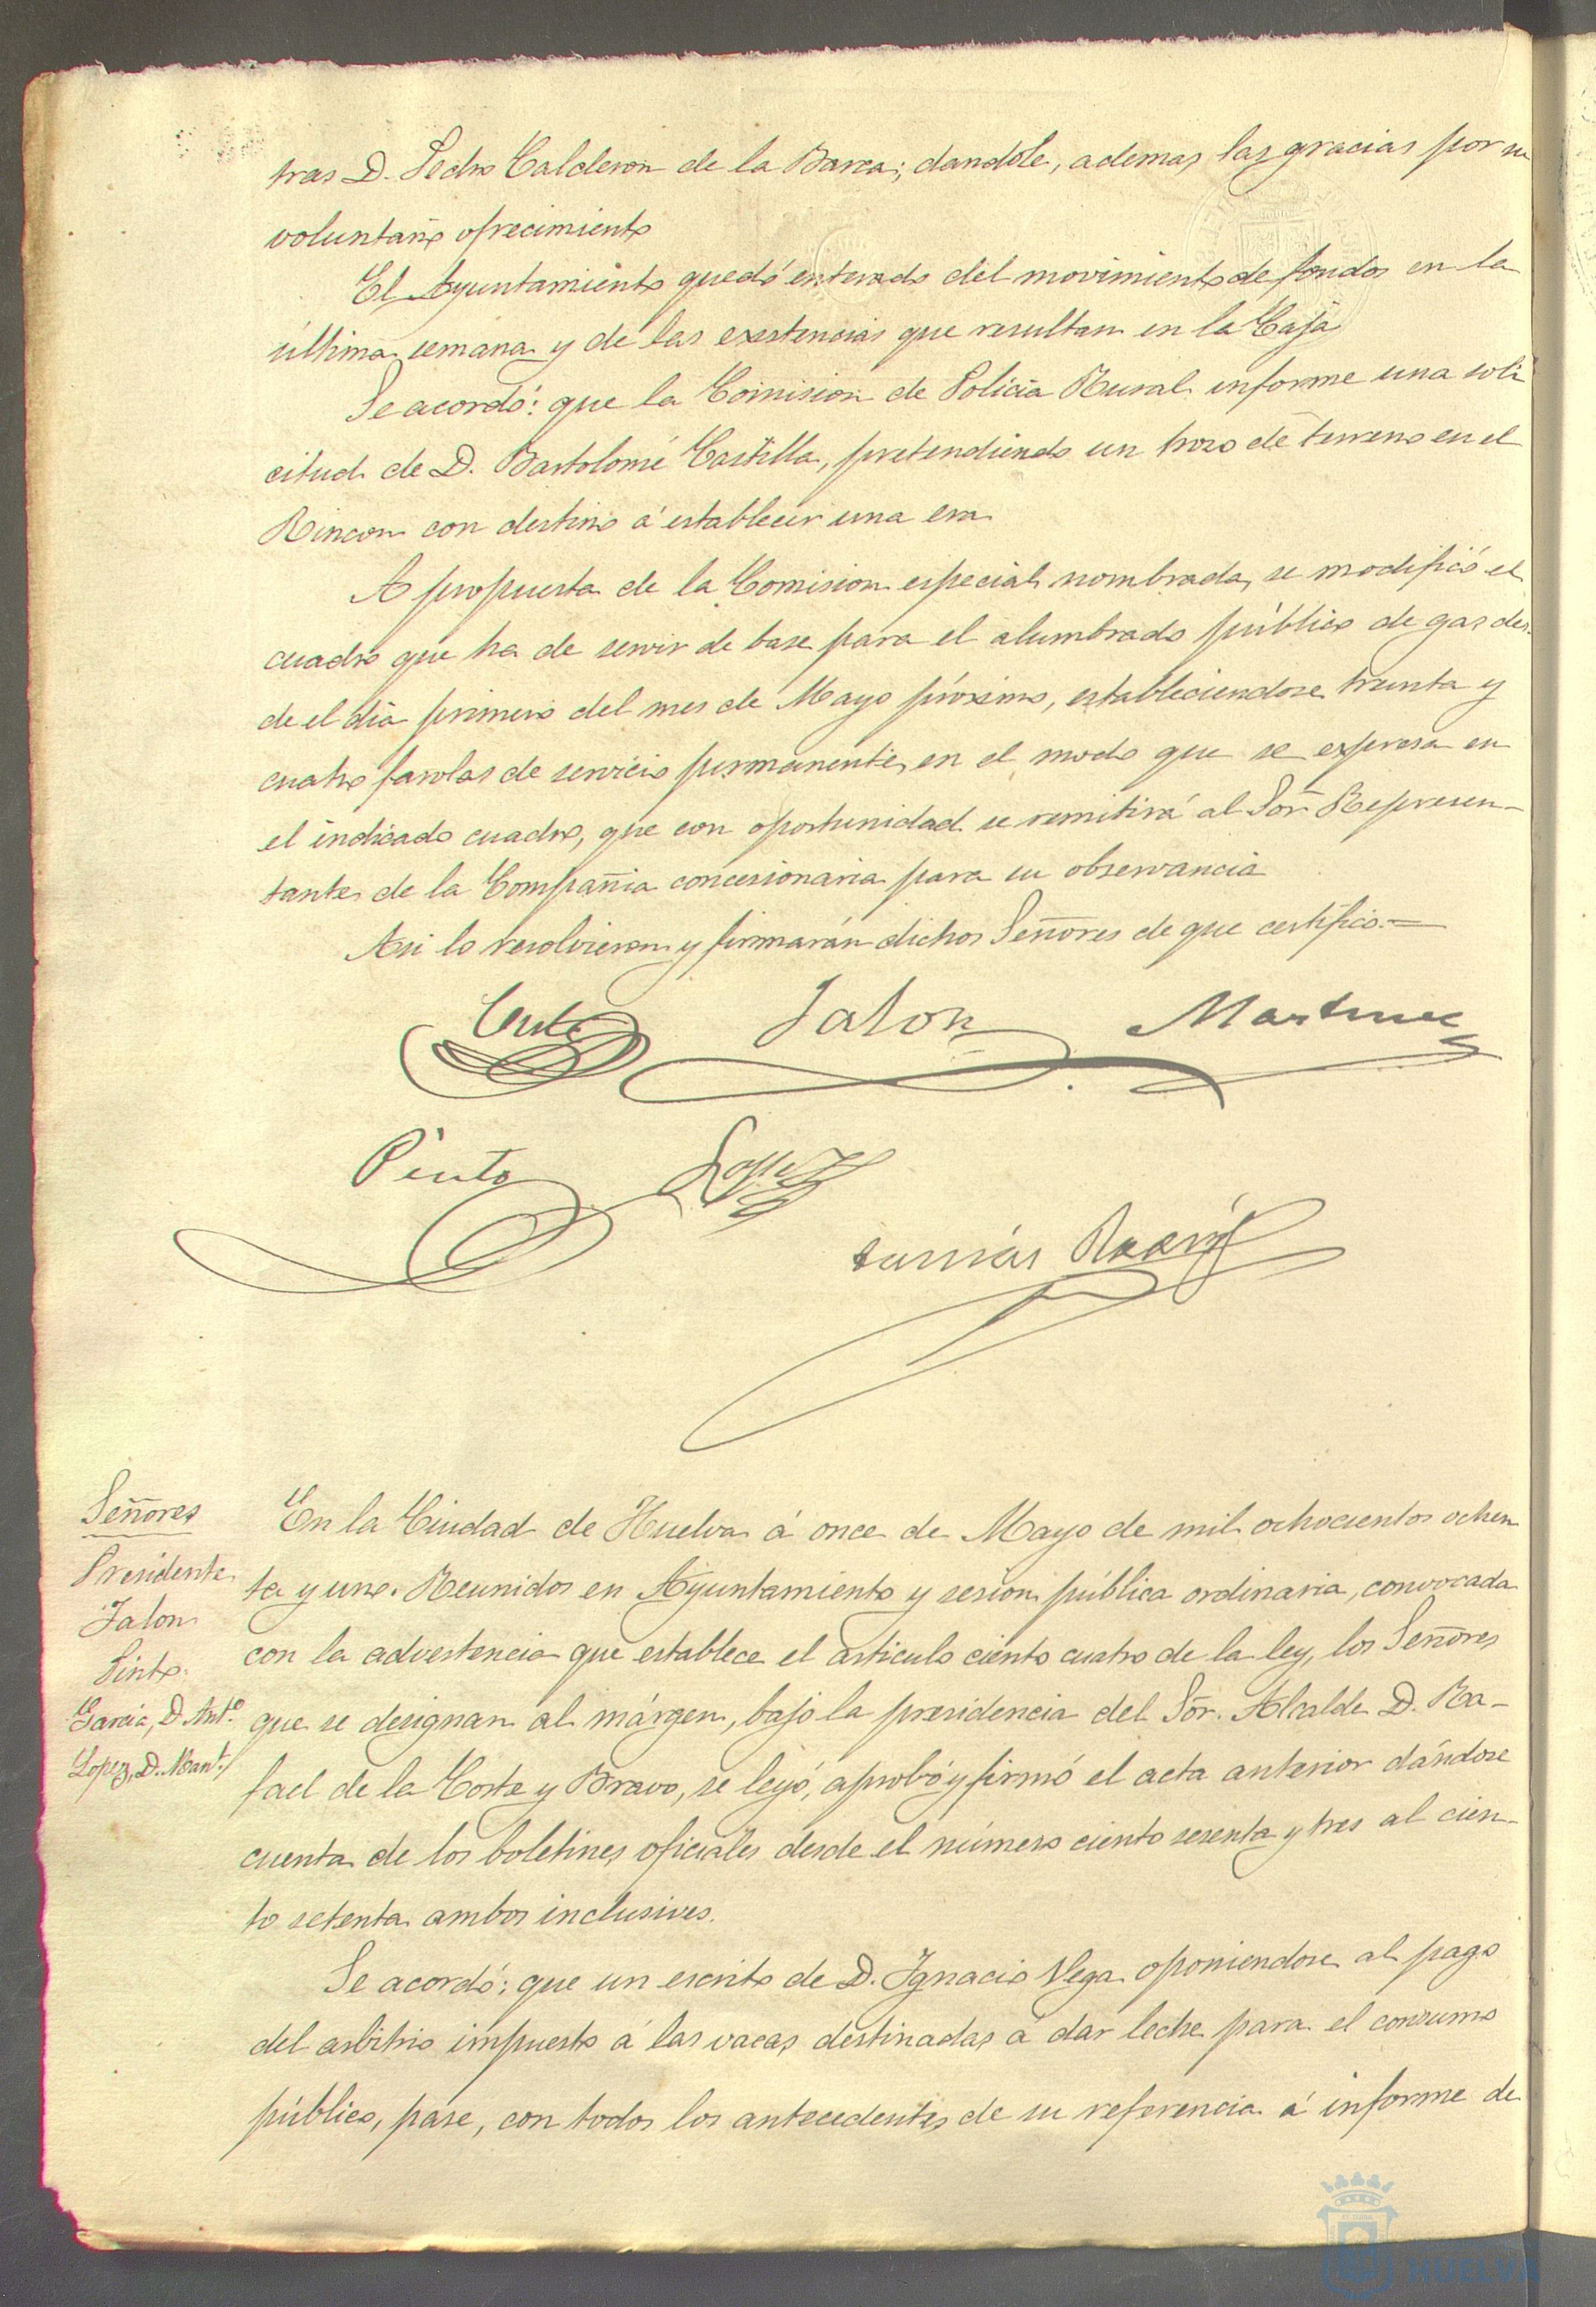 tras D. Pedro Calderon de la Barca; dandole, ademas, las gracias por su
voluntario ofrecimiento
El Ayuntamiento quedó enterado del movimiento de fondos en la
última semana y de las existencias que resultan en la Caja
Se acordó: que la Comision de Policia Rural informe una soli
citud de D. Bartolomé Castilla, pretendiendo un trozo de terreno en el
Rincon con destino á establecer una era
A propuesta de la Comision especial nombrada, se modificó el
cuadro que ha de servir de base para el alumbrado público de gas des
de el dia primero del mes de Mayo próximo, estableciendose treinta y
cuatro farolas de servicio permanente, en el modo que se expresa en
el indicado cuadro, que con oportunidad se remitirá al Sor. Represen-
tante de la Compañia concesionaria para su observancia
Asi lo resolvieron y firmarán dichos Señores de que certifico.=
Jalon Martinez
Pinto Lopez
Señores
Presidente
Jalon
Pinto
Garcia, D. Antº
Lopez, D. Manl.
En la Ciudad de Huelva á once de Mayo de mil ochocientos ochen
ta y uno. Reunidos en Ayuntamiento y sesion pública ordinaria, convocada
con la advertencia que establece el articulo ciento cuatro de la ley, los Señores
que se designan al márgen, bajo la presidencia del Sor. Alcalde D. Ra-
fael de la Corte y Bravo, se leyó, aprobó y firmó el acta anterior dándose
cuenta de los boletines oficiales desde el número ciento sesenta y tres al cien-
to setenta ambos inclusives.
Se acordó: que un escrito de D. Ignacio Vega oponiendose al pago
del arbitrio impuesto á las vacas destinadas á dar leche para el consumo
público, pase, con todos los antecedentes de su referencia á informe de
HUELVA